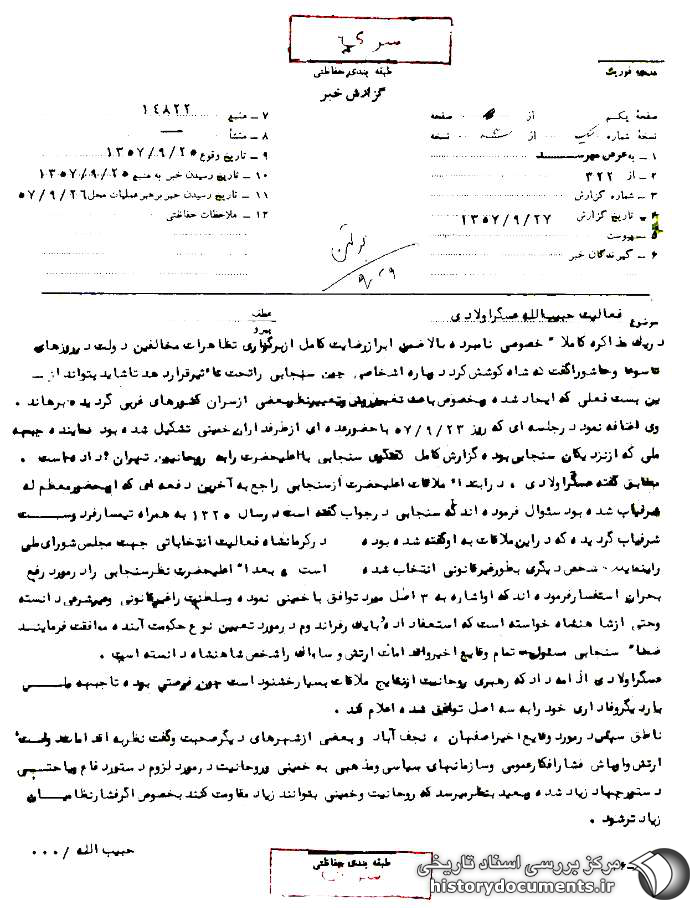 سری
طبقه بندی حفاظتی
درجه فوریت
گزارش خبر
صفحهٔ یکم از صفحه
نسخهٔ شماره یک از نسخه
۱ ـ به عرض میرسد
۲ ـ از ۳۲۲
۳ ـ شماره گزارش
۴ ـ تاریخ گزارش ۱۳۵۷/۹/۲۷
۵ ـ پیوست
۶ ـ گیرندگان خبر
۷ ـ منبع ۱۴۸۲۲
۸ ـ منشأ
۹ ـ تاریخ وقوع ۱۳۵۷/۹/۲۵
۱۰ ـ تاریخ رسیدن خبر به منبع ۱۳۵۷/۹/۲۵
۱۱ ـ تاریخ رسیدن خبر برهبر عملیات محل ۵۷/۹/۲۶
۱۲ ـ ملاحظات حفاظتی
موضوع فعالیت حبیب‌الله عسگراولادی
عطف
پیرو
دریک مذاکره کاملا" خصوصی نامبرده بالا ضمن ابراز رضایت کامل از برگزاری تظاهرات مخالفین دولت در روزهای
تاسوعا وعاشورا گفت شاه کوشش کرد در باره اشخاصی چون سنجابی راتحت تأثیر قرار دهد تاشاید بتواند از ـ
بن بست فعلی که ایجاد شده بخصوص باعث تغییر نظر بعضی از سران کشورهای غربی گردیده برهاند .
وی اضافه نمود در جلسه ای که روز ۵۷/۹/۲۳ با حضور عده ای از طرفداران خمینی تشکیل شده بود نماینده جبهه
ملی که از نزدیکان سنجابی بوده گزارش کامل گفتگوی سنجابی با اعلیحضرت را به روحانیون تهران داده است .
مطابق گفته عسگراولادی ، در ابتدا" ملاقات اعلیحضرت از سنجابی راجع به آخرین دفعه ای که به حضور معظم له
شرفیاب شده بود سئوال فرموده اند که سنجابی در جواب گفته است در سال ۱۳۲۵ به همراه تیمسار فردوست
شرفیاب گردیده که در این ملاقات به او گفته شده بوده در کرمانشاه فعالیت انتخاباتی جهت مجلس شورای ملی
را بنماید شخص دیگری بطور غیر قانونی انتخاب شده است و بعدا" اعلیحضرت نظر سنجابی را در مورد رفع
بحران استفسار فرموده اند که او اشاره به ۳ اصل مورد توافق با خمینی نموده و سلطنت را غیر قانونی وغیر شرعی دانسته
وحتی از شاهنشاه خواسته است که استعفا داده با یک رفراندوم در مورد تعیین نوع حکومت آینده موافقت فرمایند
ضمنا" سنجابی مسئولیت تمام وقایع اخیر و اقدامات ارتش و ساواک را شخص شاهنشاه دانسته است .
عسگراولادی ادامه داد که رهبری روحانیت از نتایج ملاقات بسیار خشنود است چون فرصتی بوده تا جبهه ملی
بار دیگر وفاداری خود را به سه اصل توافق شده اعلام کند .
ناطق سپس در مورد وقایع اخیر اصفهان ، نجف آباد و بعضی از شهرهای دیگر صحبت و گفت نظر به اقدامات دولت
ارتش واوباش فشار افکار عمومی وسازمانهای سیاسی ومذهبی به خمینی وروحانیت در مورد لزوم دستور دفاع ویا حتی
دستور جهاد زیاد شده و بعید بنظر میرسد که روحانیت وخمینی بتوانند زیاد مقاومت کنند بخصوص اگر فشار نظامیان
زیاد تر شود .
حبیب الله / ۰۰۰
طبقه بندی حفاظتی
مرکز بررسی اسناد تاریخی
historydocuments.ir